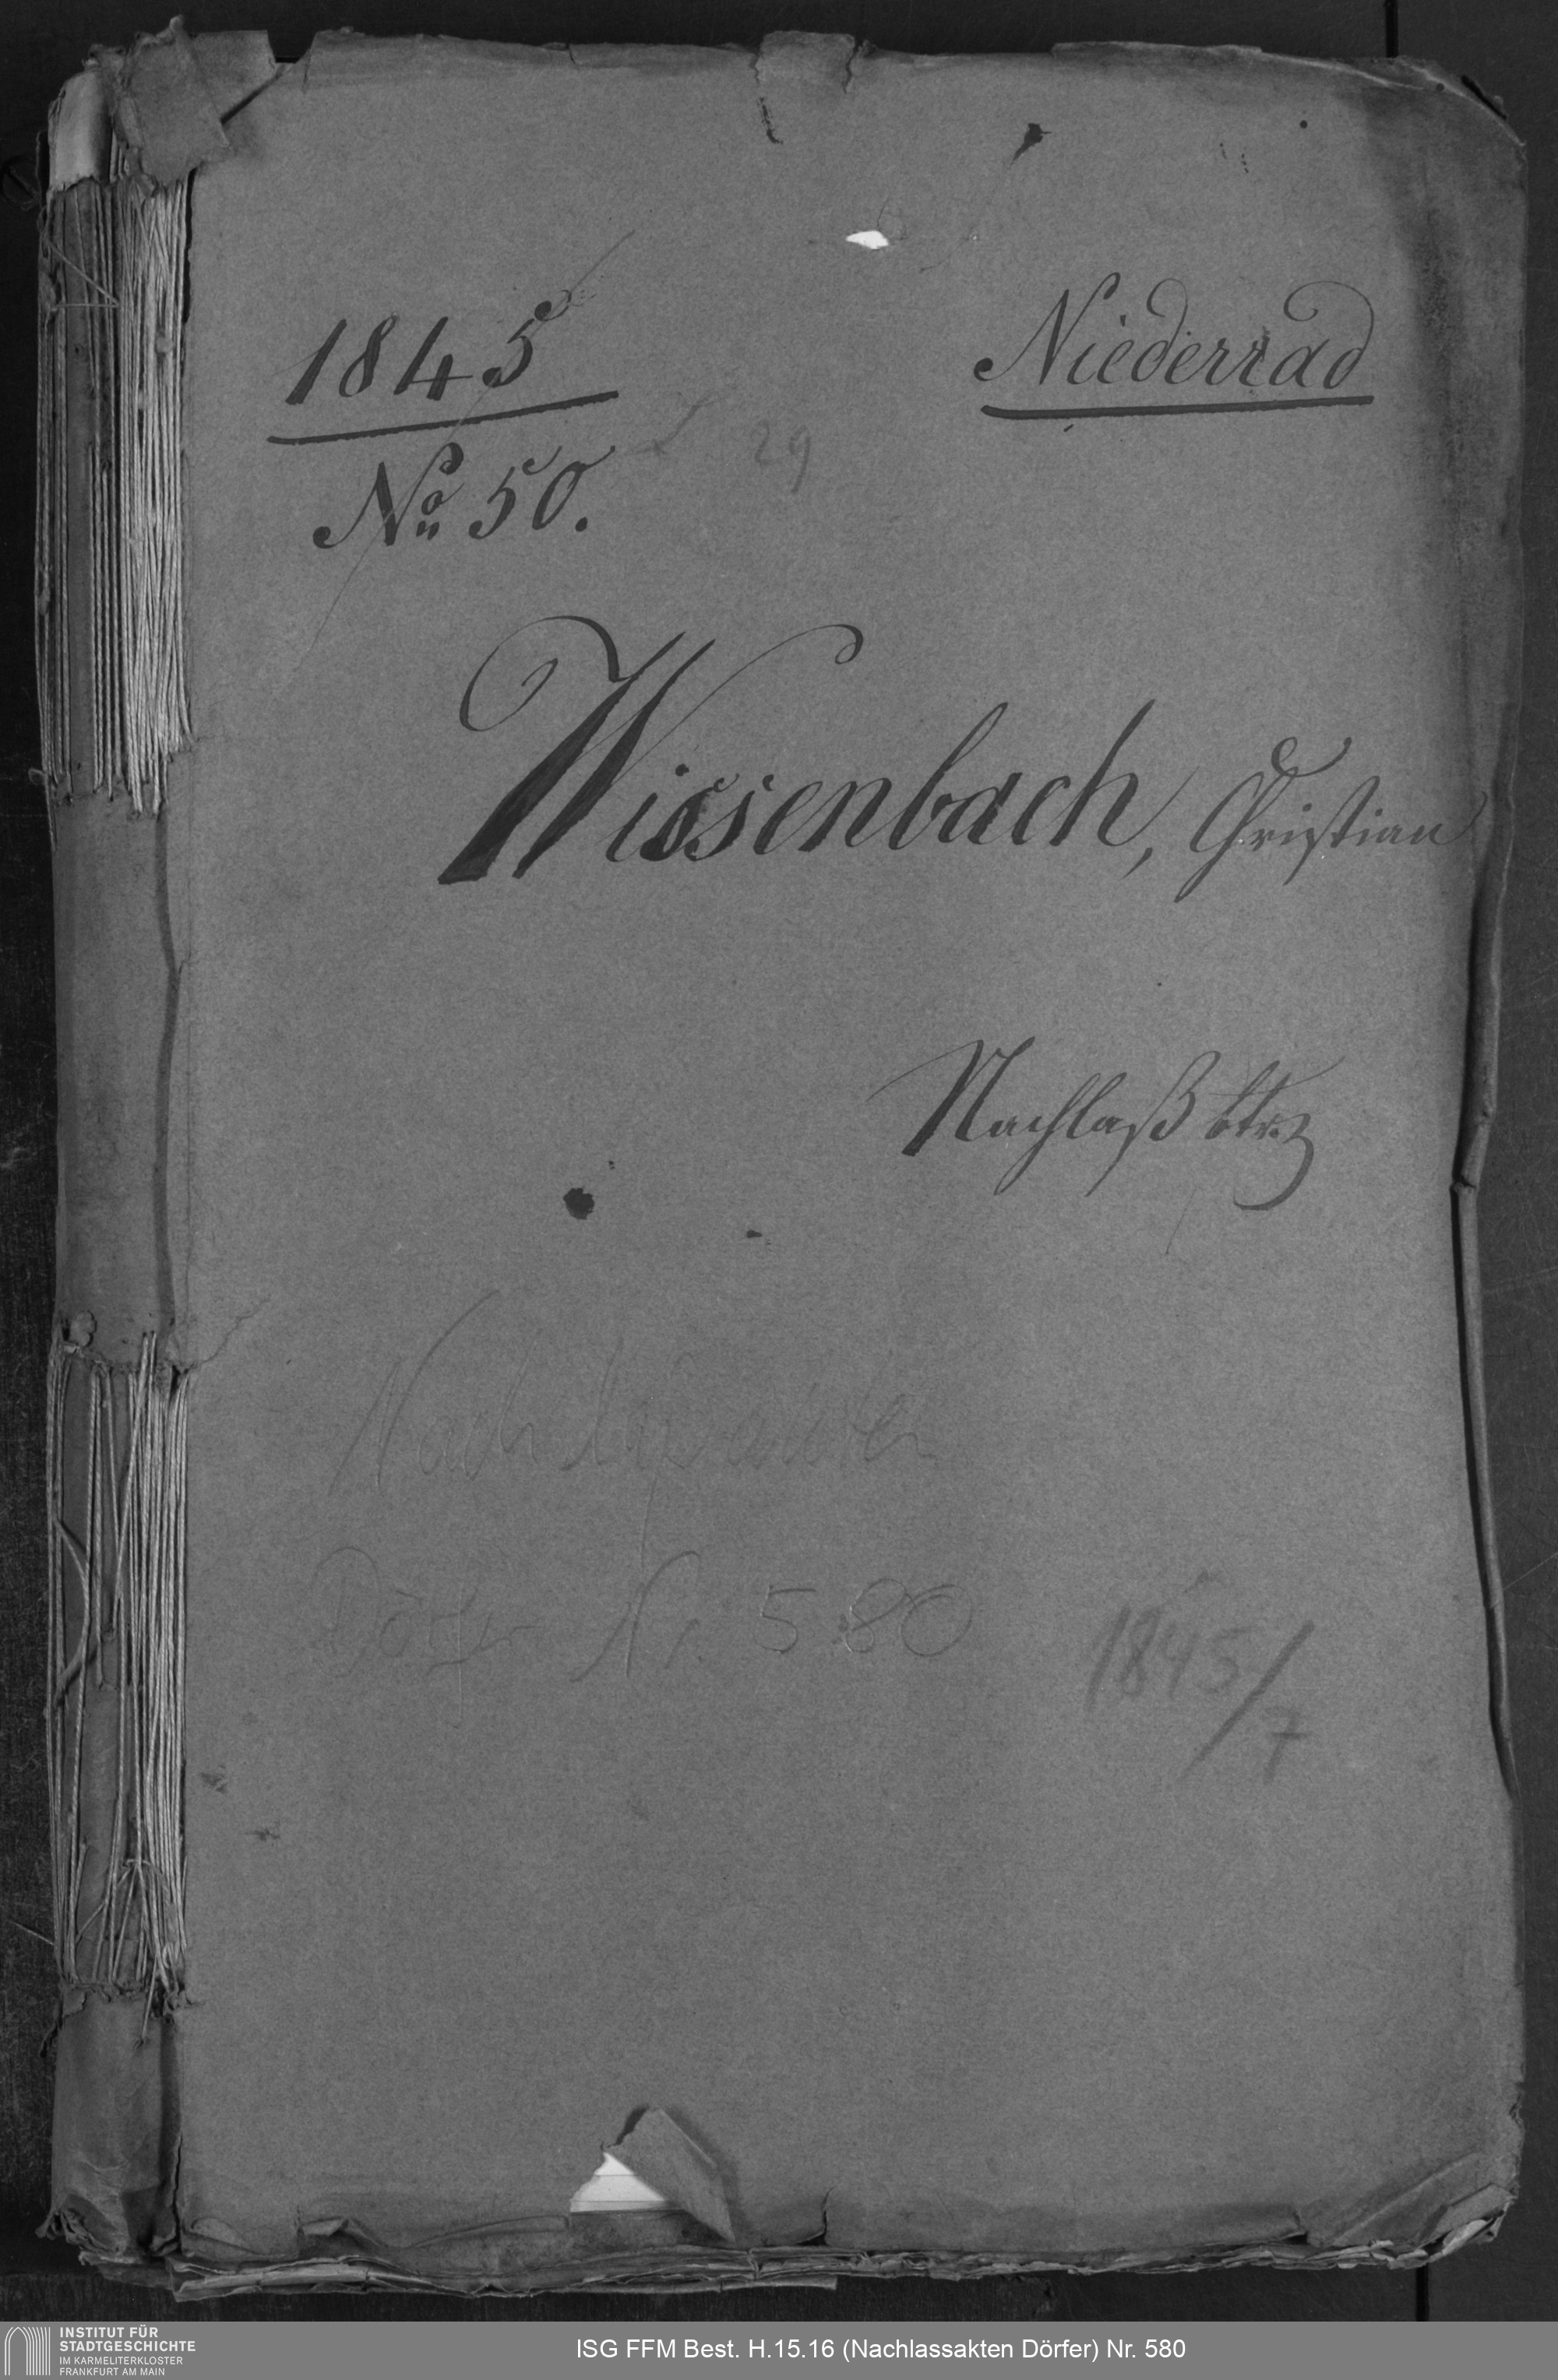 1845
Niederrad
No 50.
29
Wissenbach, Christian
Nachlaß btr.
Nachlaßakten
Dörfer Nr. 580
1845/7
INSTITUT FÜR
STADTGESCHICHTE
IM KARMELITERKLOSTER
FRANKFURT AM MAIN
ISG FFM Best. H.15.16 (Nachlassakten Dörfer) Nr. 580